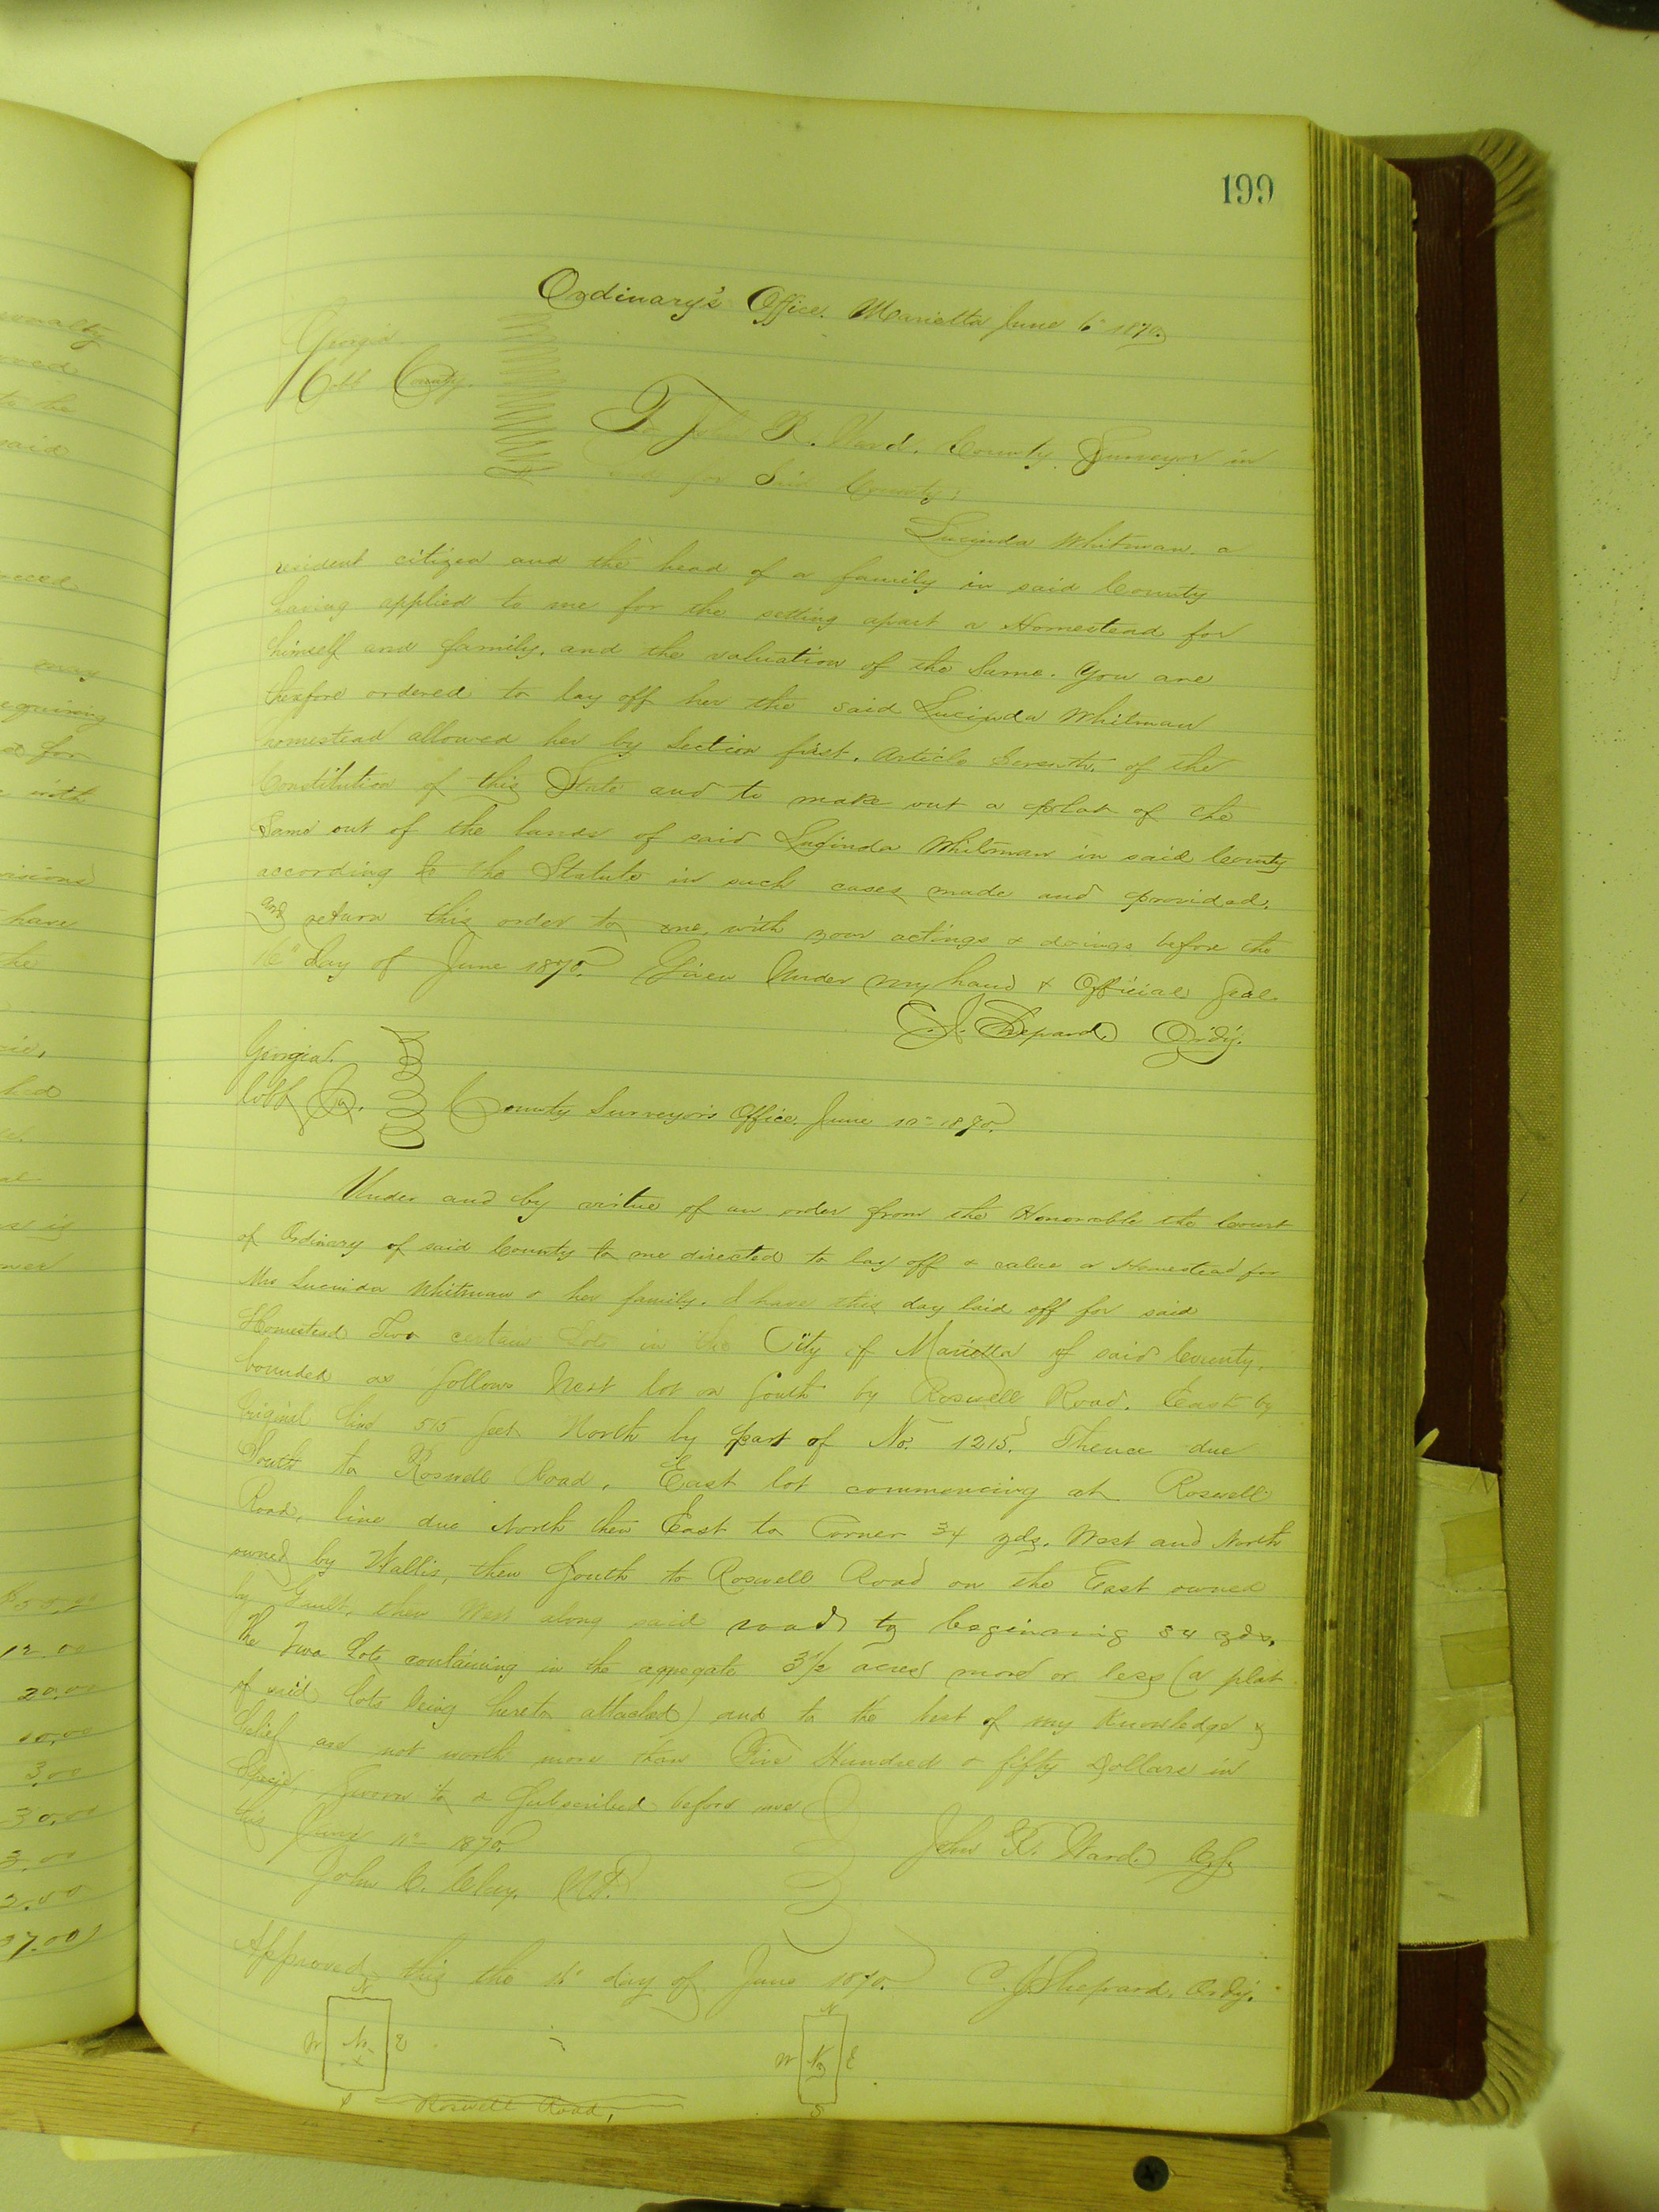 199
Ordinary's Office, Marietta June 6" 1870.
Georgia.
Cobb County.
To John R. Ward, County Surveyor in
and for Said County:
Lucinda Whitman, a
resident citizen and the head of a family in said County
having applied to me for the setting apart a Homestead for
himself and family, and the valuation of the Same. You are
therefore ordered to lay off her the said Lucinda Whitman
homestead allowed her by Section first, Article Seventh, of the
Constitution of this State and to make out a plat of the
Same out of the lands of said Lucinda Whitman in said County
according to the Statute in such cases made and provided.
and return this order to me, with your actings & doings before the
16" day of June 1870. Given Under my hand & Official Seal
C. J. Shepard, Ord'y.
Georgia.
Cobb Co. County Surveyor's Office, June 10" 1870.
Under and by virtue of an order from the Honorable the Court
of Ordinary of said County to me directed to lay off & value a Homestead for
Mrs Lucinda Whitman & her family. I have this day laid off for said
Homestead Two certain Lots in the City of Marietta of said County,
bounded as follows West lot on South by Roswell Road, East by
Original line 515 feet North by part of No. 1215. Thence due
South to Roswell Road. East lot commencing at Roswell
Road, line due North then East to Corner 34 yds. West and North
owned by Wallis, then South to Roswell Road on the East owned
by Gault, then West along said road to beginning 34 yds.
The Two Lots containing in the aggregate 3½ acres more or less (a plat
of said lots being hereto attached) and to the best of my Knowledge &
belief are not worth more than Five Hundred & fifty Dollars in
Specie. Sworn to & Subscribed before me
this June 11" 1870. John R. Ward. C.S.
John C. Clay, N.P.
Approved this the 16" day of June 1870. C. J. Shepard, Ordy.
N
W No E
S
N
W No 2 E
S
Roswell Road.
may
for
with
have
12.00
20.00
10.00
3.00
30.00
3.00
2.00